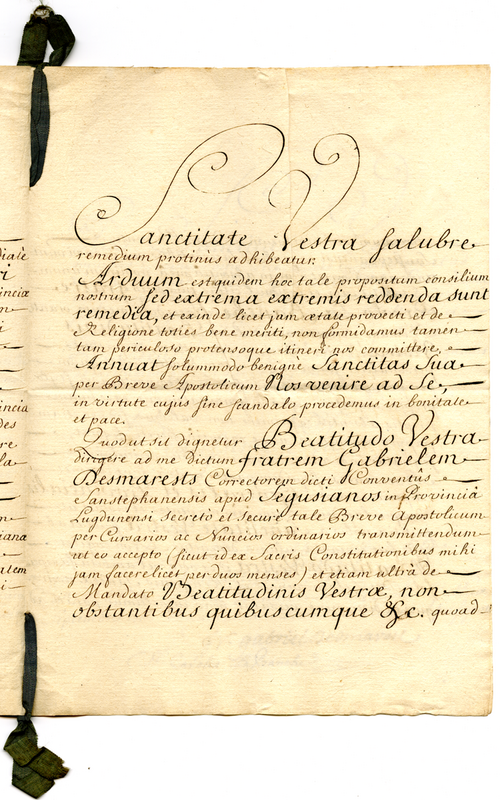 Sanctitate Vestra salubre
remedium protinùs adhibeatur.
Arduum est quidem hoc tale propositum consilium
nostrum sed extrema extremis reddenda sunt
remedia, et exinde licet jam ætate provecti et de
Religione toties bene meriti, non formidamus tamen
tam periculoso protensoque itineri nos committere,
Annuat solummodo benignè Sanctitas Sua
per Breve Apostolicum Nos venire ad Se,
in virtute cujus sine scandalo procedemus in bonitate
et pace.
Quod ut sit dignetur Beatitudo Vestra
dirigere ad me Dictum fratrem Gabrielem
Desmarests Correctorem dicti Conventus
Sanstephanensis apud Segusianos in Provinciâ
Lugdunensi secretò et securè tale Breve Apostolicum
per Cursarios ac Nuncios ordinarios transmittendum
ut eo accepto (sicut id ex Sacris Constitutionibus mihi
jam facere licet per duos menses) et etiam ultrà de
Mandato Beatitudinis Vestræ, non
obstantibus quibuscumque &c. quoad-